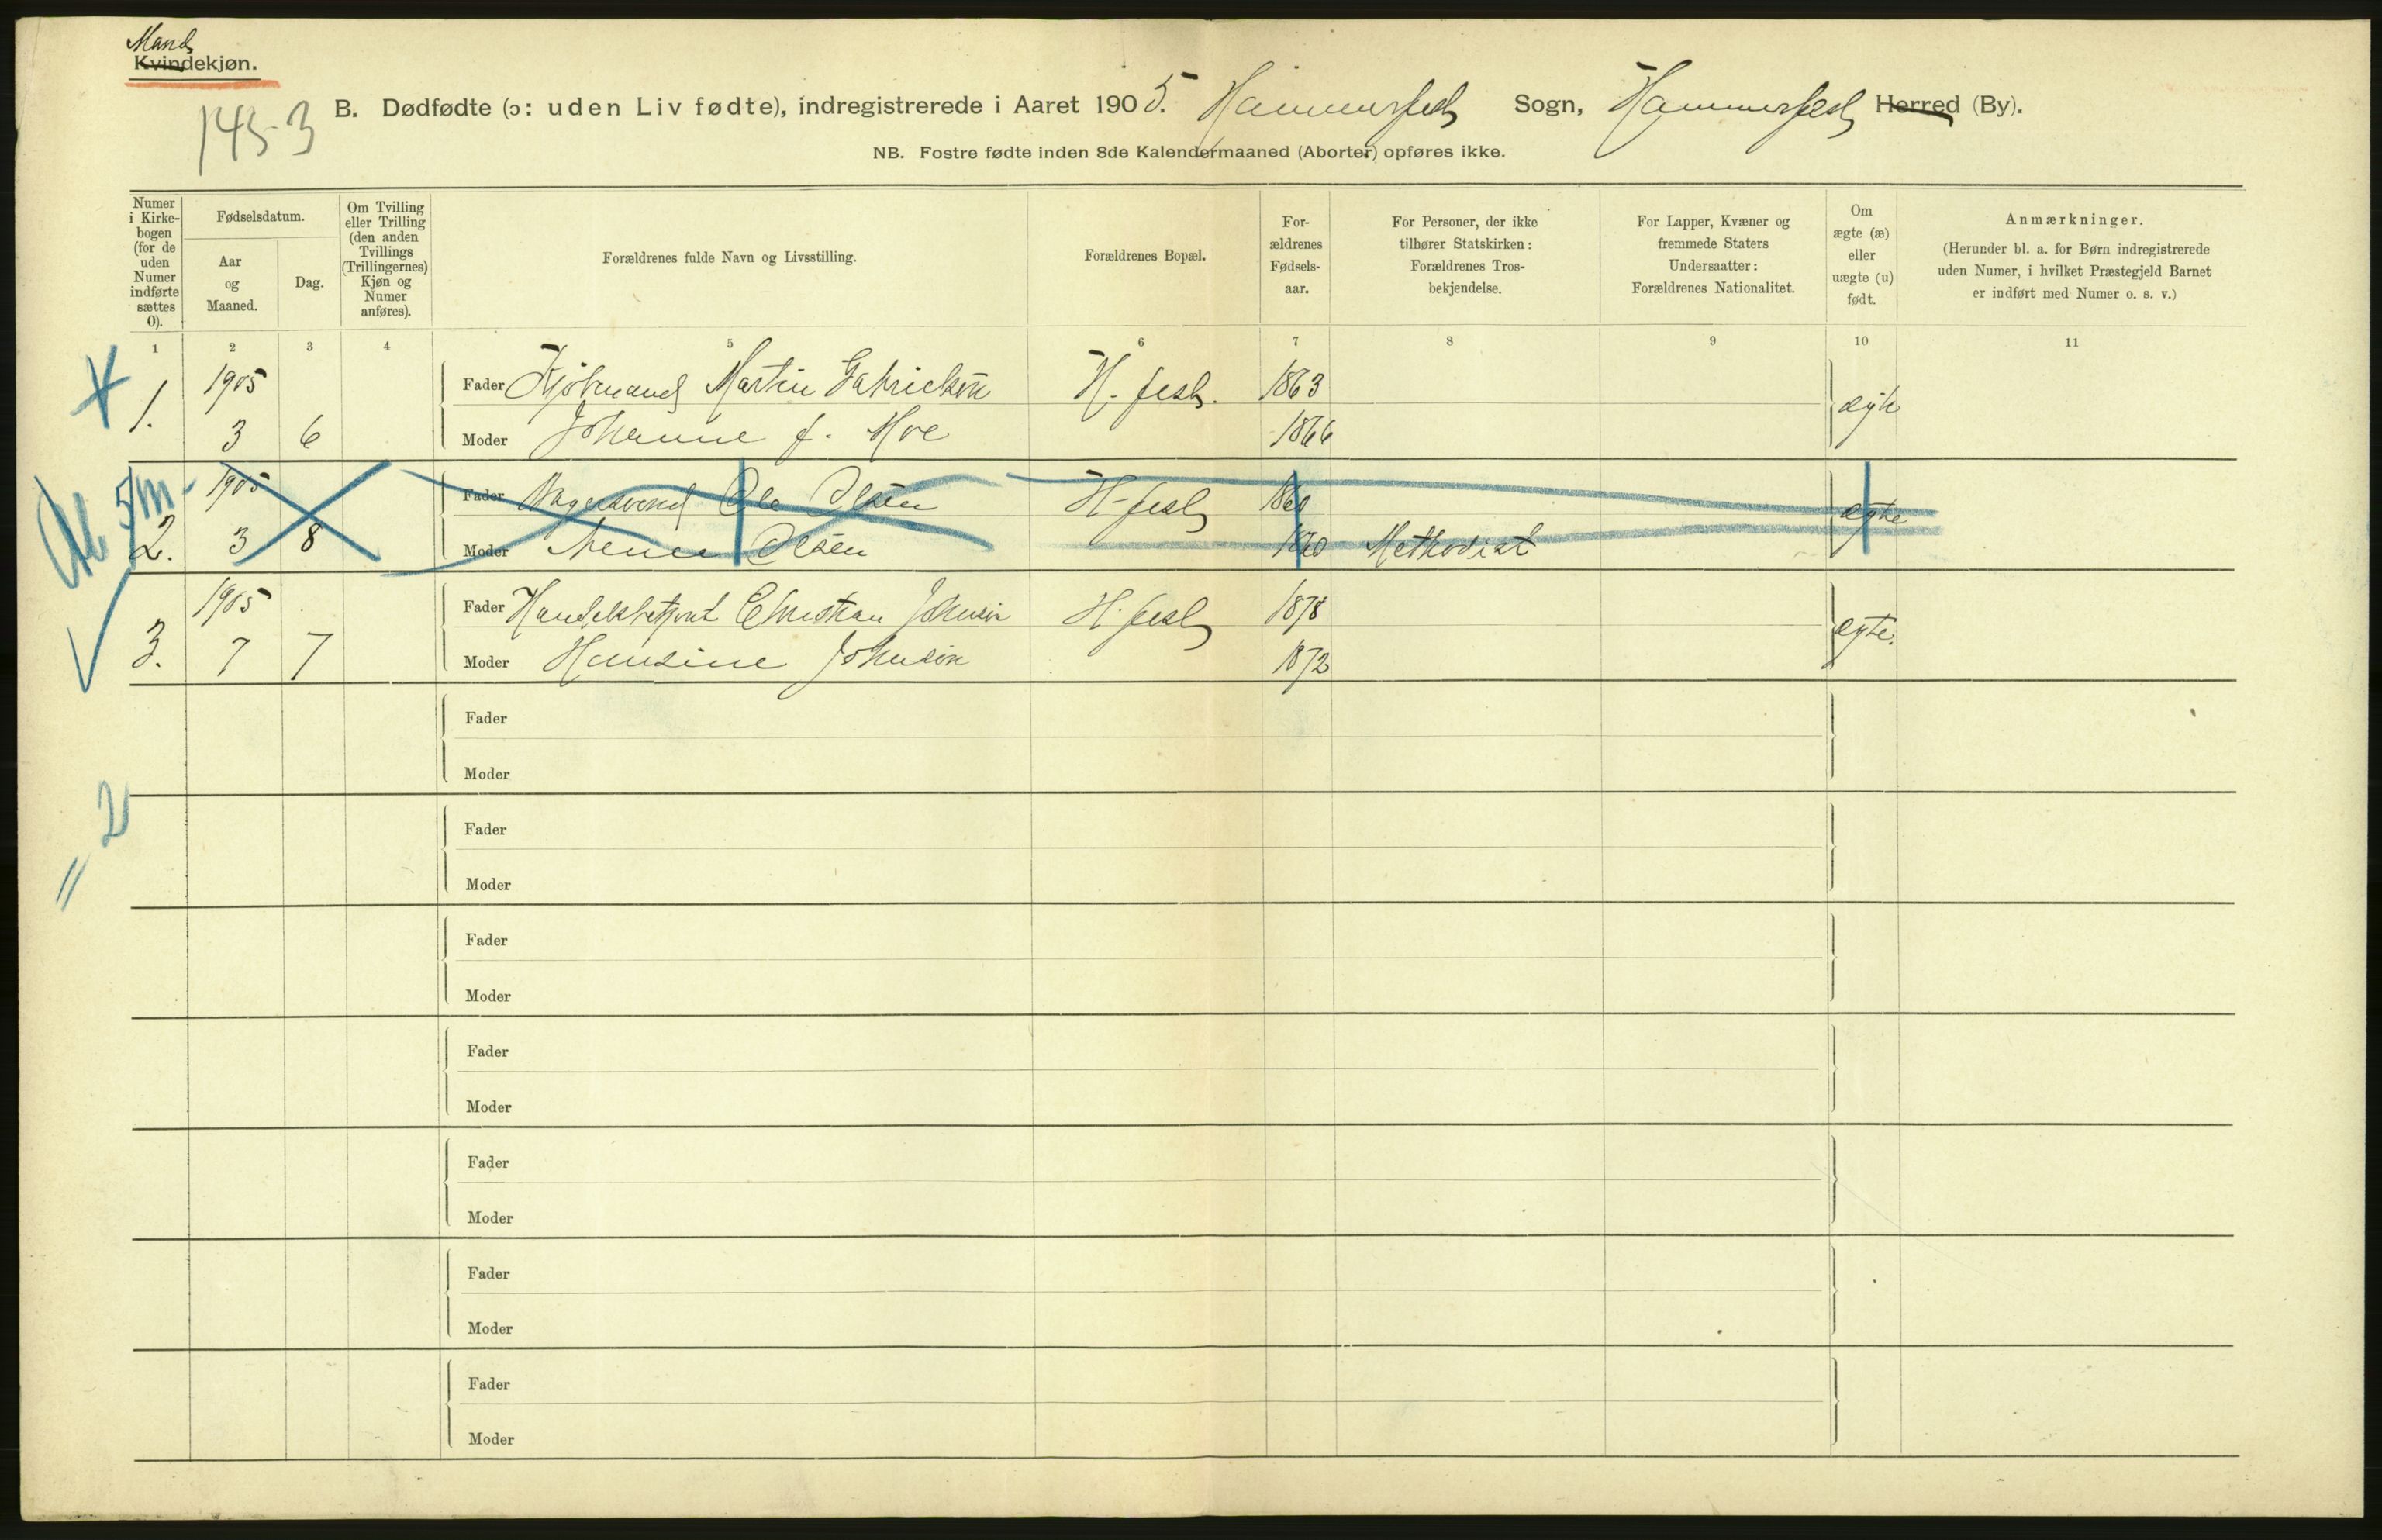 Mands
Kvindekjøn.
143-3
B. Dødfødte (ɔ: uden Liv fødte), indregistrerede i Aaret 1905. Hammerfest Sogn, Hammerfest Herred (By).
NB. Fostre fødte inden 8de Kalendermaaned (Aborter) opføres ikke.
Numer i Kirke-bogen (for de uden Numer indførte sættes 0).
Fødselsdatum.
Aar og Maaned.
Dag.
Om Tvilling eller Trilling (den anden Tvillings (Trillingernes) Kjøn og Numer anføres).
Forældrenes fulde Navn og Livsstilling.
Forældrenes Bopæl.
For-ældrenes Fødsels-aar.
For Personer, der ikke tilhører Statskirken: Forældrenes Tros-bekjendelse.
For Lapper, Kvæner og fremmede Staters Undersaatter: Forældrenes Nationalitet.
Om ægte (æ) eller uægte (u) født.
Anmærkninger.
(Herunder bl. a. for Børn indregistrerede uden Numer, i hvilket Præstegjeld Barnet er indført med Numer o. s. v.)
1 2 3 4 5 6 7 8 9 10 11
1. 1905 Fader Kjøbmand Martin Gabrielsen H.fest. 1863 ægte
3 6 Moder Johanne f. Moe 1866
5 m
2. 1905 Fader Ole Olsen H-fest 1860 ægte
3 8 Moder Olsen Methodist
3. 1905 Fader Handelsbetjent Christian Johnsen H.fest 1878 ægte.
7 7 Moder Hansine Johnsen 1872
Fader
Moder
2
Fader
Moder
Fader
Moder
Fader
Moder
Fader
Moder
Fader
Moder
Fader
Moder